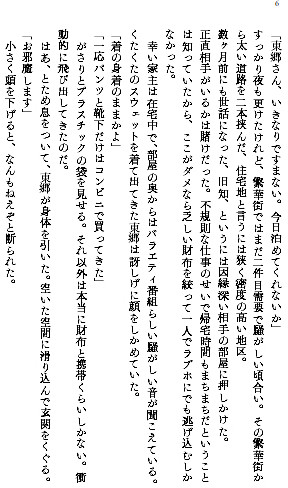 6
「東郷さん、いきなりですまない。今日泊めてくれないか」
すっかり夜も更けたけれど、繁華街ではまだ二件目需要で騒がしい頃合い。その繁華街か
ら太い道路を二本挟んだ、住宅地と言うには狭く密度の高い地区。
数ヶ月前にも世話になった、旧知、というには因縁深い相手の部屋に押しかけた。
正直相手がいるかは賭けだった。不規則な仕事のせいで帰宅時間もまちまちだということ
は知っていたから、ここがダメなら乏しい財布を絞って一人でラブホにでも逃げ込むしか
なかった。
幸い家主は在宅中で、部屋の奥からはバラエティ番組らしい騒がしい音が聞こえている。
くたくたのスウェットを着て出てきた東郷は訝しげに顔をしかめていた。
「着の身着のままかよ」
「一応パンツと靴下だけはコンビニで買ってきた」
がさりとプラスチックの袋を見せる。それ以外は本当に財布と携帯くらいしかない。衝
動的に飛び出してきたのだ。
はあ、とため息をついて、東郷が身体を引いた。空いた空間に滑り込んで玄関をくぐる。
「お邪魔します」
小さく頭を下げると、なんもねえぞと断られた。